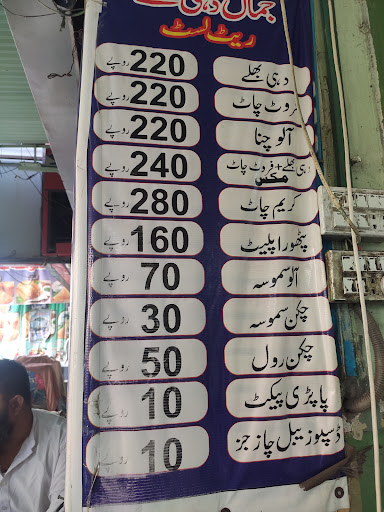 جمال دہی بھلے
ریٹ لسٹ
دہی بھلے 220 روپے
فروٹ چاٹ 220 روپے
آلو چنا 220 روپے
دہی بھلے + فروٹ چاٹ مکس 240 روپے
کریم چاٹ 280 روپے
پٹھورا پلیٹ 160 روپے
آلو سموسہ 70 روپے
چکن سموسہ 30 روپے
چکن رول 50 روپے
پاپڑی پیکٹ 10 روپے
ڈسپوزیبل چارجز 10 روپے